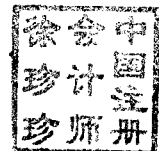 中国注册
会计师
徐珍珍